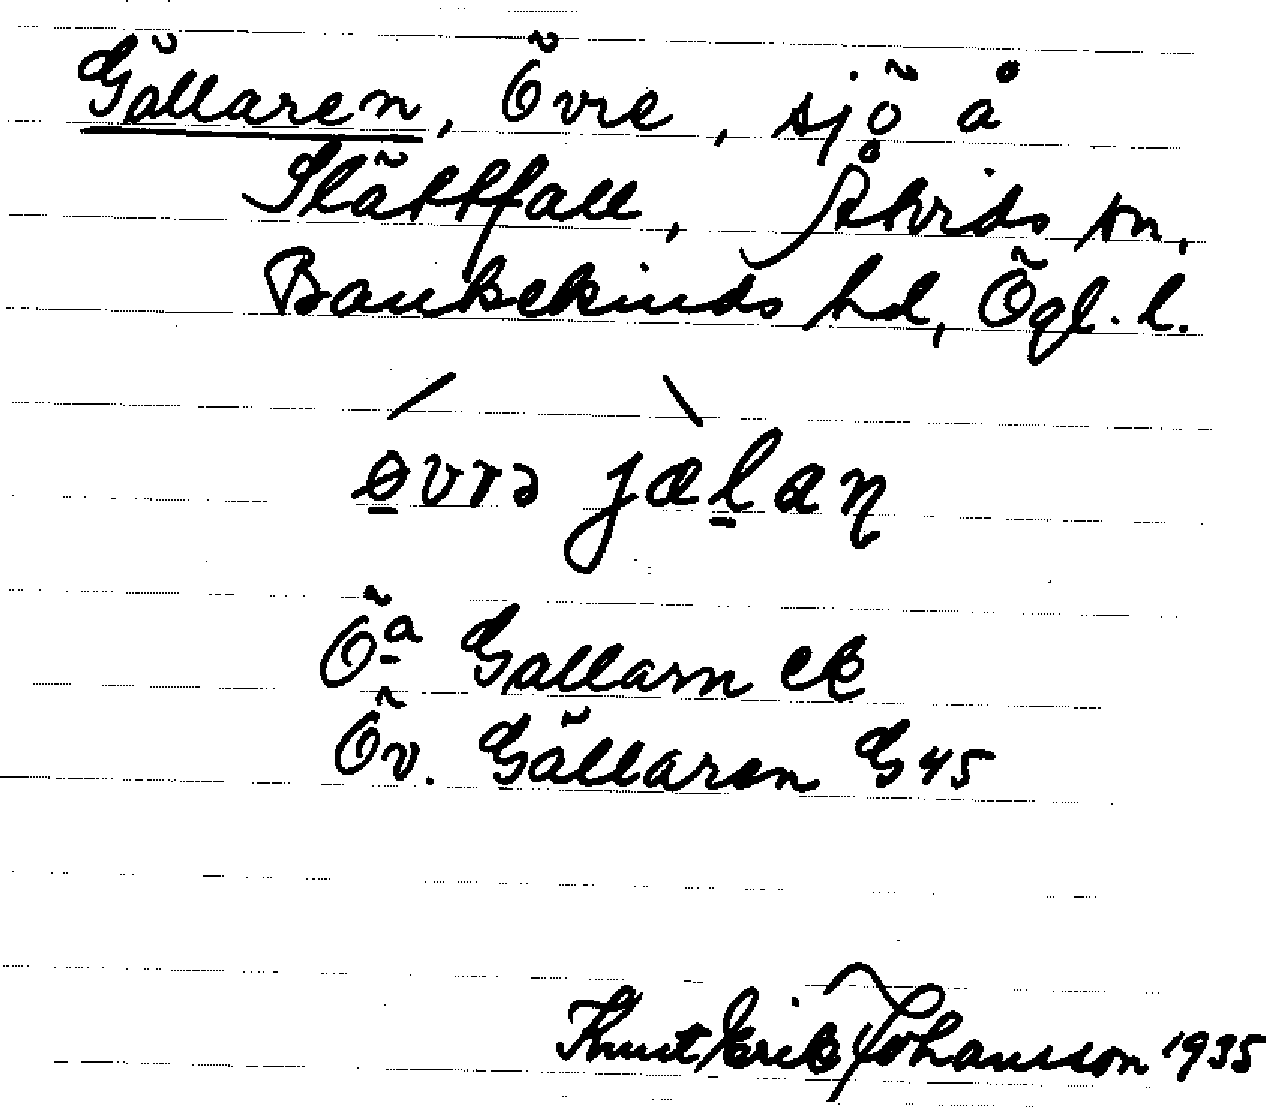 Gällaren, Övre, sjö å
Slättfall, Åtvids sn,
Bankekinds hd, Ögl. l.
øvrə jælaɳ
Öa Gallarn ek
Öv. Gällaren G45
Knut Erik Johansson 1935